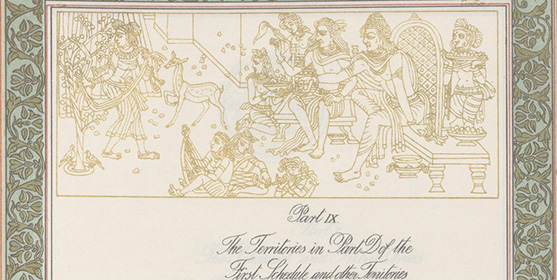 Part IX
The Territories in Part D of the
First Schedule and other Territories